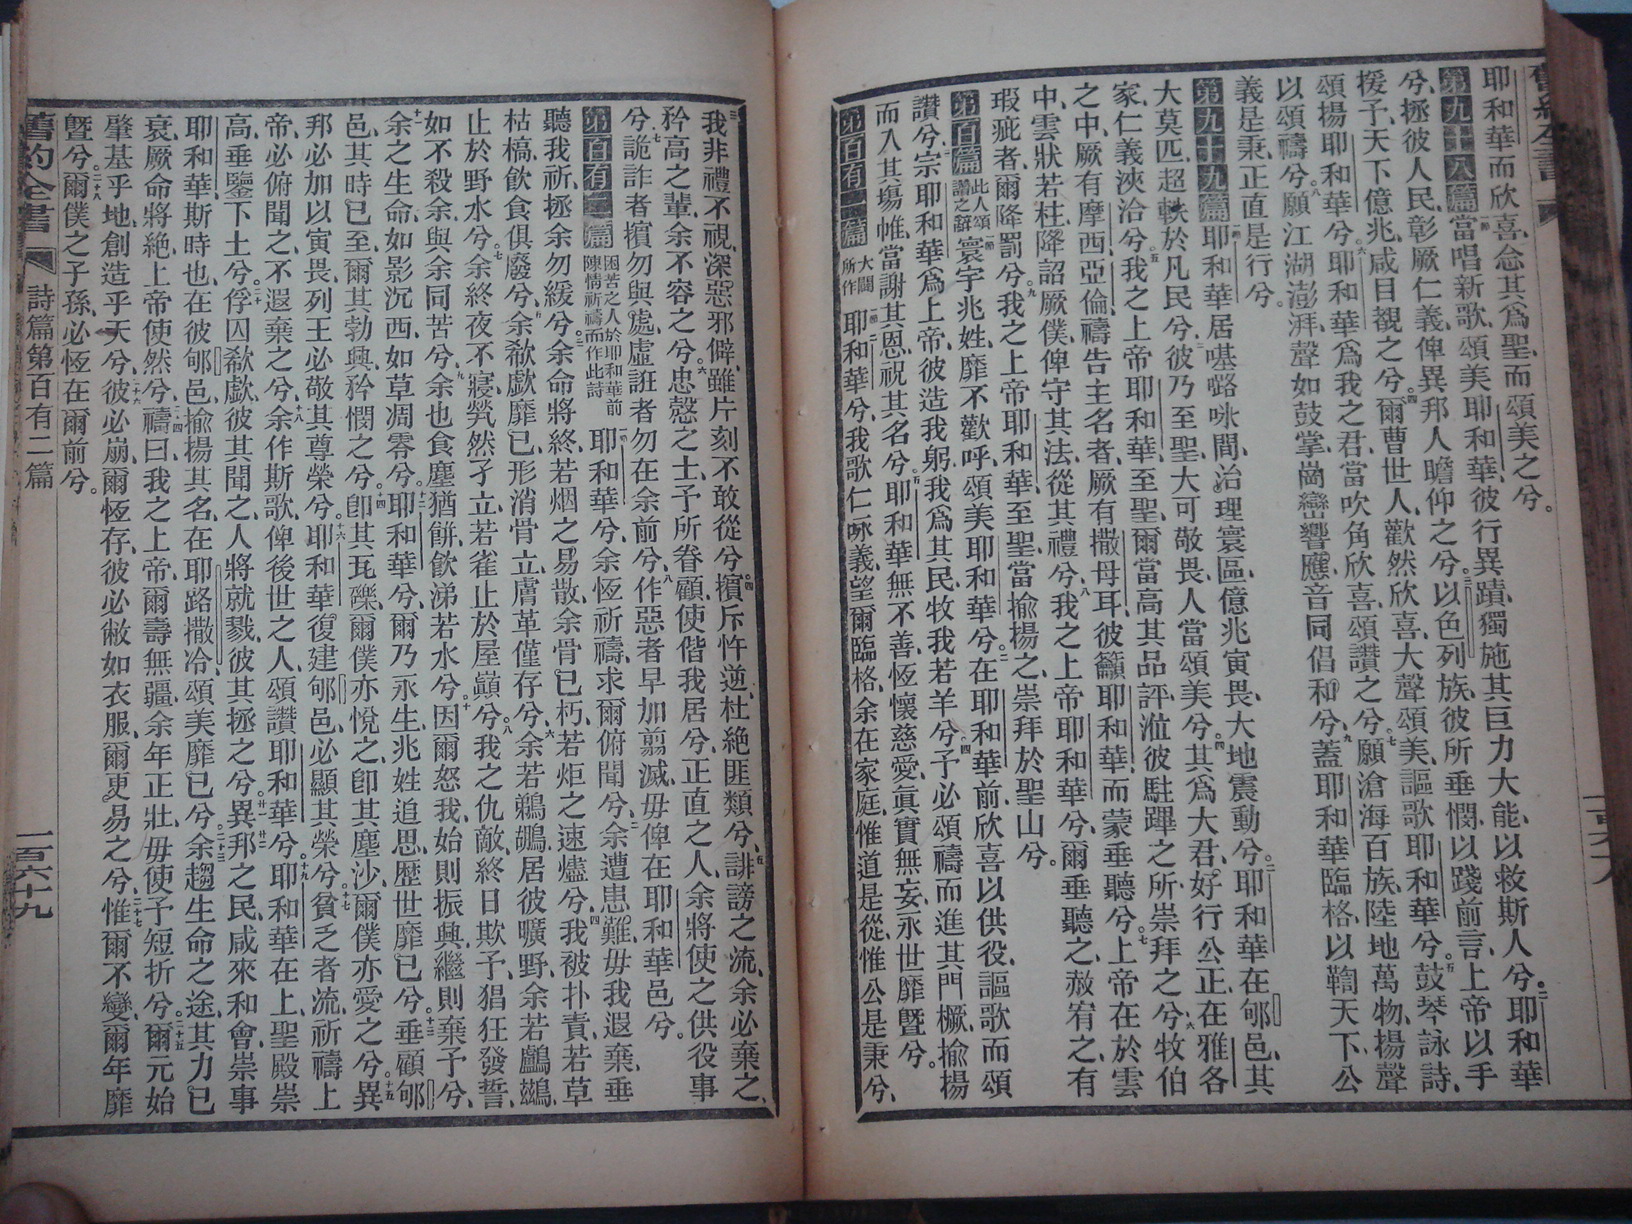 耶和華而欣喜、念其爲聖、而頌美之兮。
第九十八篇 一節當唱新歌、頌美耶和華、彼行異蹟、獨施其巨力大能、以救斯人兮、二耶和華
兮、拯彼人民、彰厥仁義、俾異邦人瞻仰之兮、三以色列族、彼所垂憫、以踐前言、上帝以手
援予、天下億兆、咸目覩之兮、四爾曹世人、歡然欣喜、大聲頌美、謳歌耶和華兮、五鼓琴詠詩、
頌揚耶和華兮、六耶和華爲我之君、當吹角欣喜、頌讚之兮、七願滄海百族、陸地萬物、揚聲
以頌禱兮、八願江湖澎湃、聲如鼓掌、崗巒響應、音同倡和兮、九蓋耶和華臨格、以鞫天下、公
義是秉、正直是行兮。
第九十九篇 一節耶和華居𠼻嚧咏間、治理寰區、億兆寅畏、大地震動兮、二耶和華在郇邑、其
大莫匹、超軼於凡民兮、三彼乃至聖、大可敬畏、人當頌美兮、四其爲大君、好行公正、在雅各
家、仁義浹洽兮、五我之上帝耶和華、至聖、爾當高其品評、涖彼駐蹕之所、崇拜之兮、六牧伯
之中、厥有摩西、亞倫、禱告主名者、厥有撒母耳、彼籲耶和華、而蒙垂聽兮、七上帝在於雲
中、雲狀若柱、降詔厥僕、俾守其法、從其禮兮、八我之上帝耶和華兮、爾垂聽之、赦宥之、有
瑕疵者、爾降罰兮、九我之上帝耶和華、至聖、當揄揚之、崇拜於聖山兮。
第百篇 此人頌讚之辭 一節寰宇兆姓、靡不歡呼、頌美耶和華兮、二在耶和華前、欣喜以供役、謳歌而頌
讚兮、三宗耶和華爲上帝、彼造我躬、我爲其民、牧我若羊兮、四予必頌禱、而進其門橛、揄揚
而入其塲帷、當謝其恩、祝其名兮、五耶和華無不善、恆懷慈愛、眞實無妄、永世靡曁兮。
第百有一篇 大闢所作 一節耶和華兮、我歌仁咏義、二望爾臨格、余在家庭、惟道是從、惟公是秉兮、
三我非禮不視、深惡邪僻、雖片刻不敢從兮、四擯斥忤逆、杜絶匪類兮、五誹謗之流、余必棄之、
矜高之輩、余不容之兮、六忠慤之士、予所眷顧、使偕我居兮、正直之人、余將使之供役事
兮、七詭詐者擯勿與處、虛誑者勿在余前兮、八作惡者早加翦滅、毋俾在耶和華邑兮。
第百有二篇 困苦之人於耶和華前陳情祈禱而作此詩 一節耶和華兮、余恆祈禱、求爾俯聞兮、二余遭患難、毋我遐棄、垂
聽我祈、拯余勿緩兮、三余命將終、若烟之易散、余骨已朽、若炬之速燼兮、四我被扑責、若草
枯槁、飲食俱廢兮、五余欷歔靡已、形消骨立、膚革僅存兮、六余若鵜鶘、居彼曠野、余若鸕鷀、
止於野水兮、七余終夜不寢、煢然孑立、若雀止於屋巔兮、八我之仇敵、終日欺予、猖狂發誓、
如不殺余、與余同苦兮、九余也食塵猶餅、飲涕若水兮、十因爾怒我、始則振興、繼則棄予兮、
十一余之生命、如影沉西、如草凋零兮、十二耶和華兮、爾乃永生、兆姓追思、歴世靡已兮、十三垂顧郇
邑、其時已至、爾其勃興、矜憫之兮、十四卽其瓦礫、爾僕亦悅之、卽其塵沙、爾僕亦愛之兮、十五異
邦必加以寅畏、列王必敬其尊榮兮、十六耶和華復建郇邑、必顯其榮兮、十七貧乏者流、祈禱上
帝、必俯聞之、不遐棄之兮、十八余作斯歌、俾後世之人、頌讚耶和華兮、十九耶和華在上聖殿、崇
高、垂鑒下土兮、二十俘囚欷歔、彼其聞之、人將就戮、彼其拯之兮、廿一廿二異邦之民、咸來和會、崇事
耶和華、斯時也、在彼郇邑、揄揚其名、在耶路撒冷、頌美靡已兮、二十三余趨生命之途、其力已
衰、厥命將絕、上帝使然兮、二十四禱曰、我之上帝、爾壽無疆、余年正壯、毋使予短折兮、二十五爾元始
肇基乎地、創造乎天兮、二十六彼必崩、爾恆存、彼必敝如衣服、爾更易之兮、二十七惟爾不變、爾年靡
曁兮、二十八爾僕之子孫、必恆在爾前兮。
舊約全書 詩篇第百有二篇 一百六十九